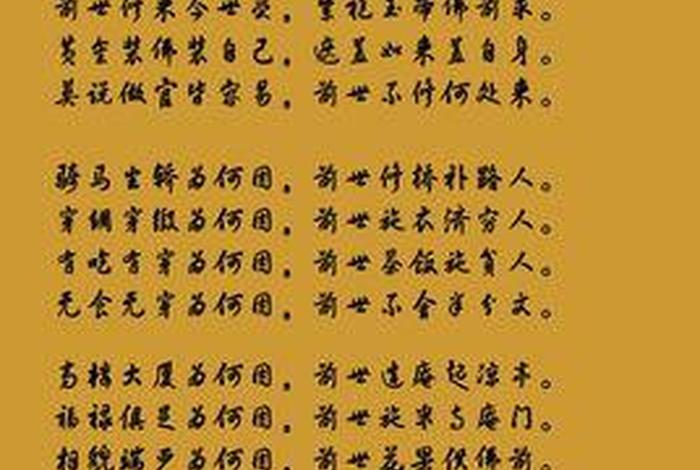 前世修来今世受，紫袍玉带佛前求。
黄金装佛装自己，遮盖如来盖自身。
莫说做官皆容易，前世不修何处来。
骑马坐轿为何因，前世修桥补路人。
穿绸穿缎为何因，前世施衣济穷人。
有吃有穿为何因，前世茶饭施贫人。
无食无穿为何因，前世不舍半分文。
高楼大厦为何因，前世造庵起凉亭。
福禄俱足为何因，前世施米与庵门。
相貌端严为何因，前世花果供佛前。